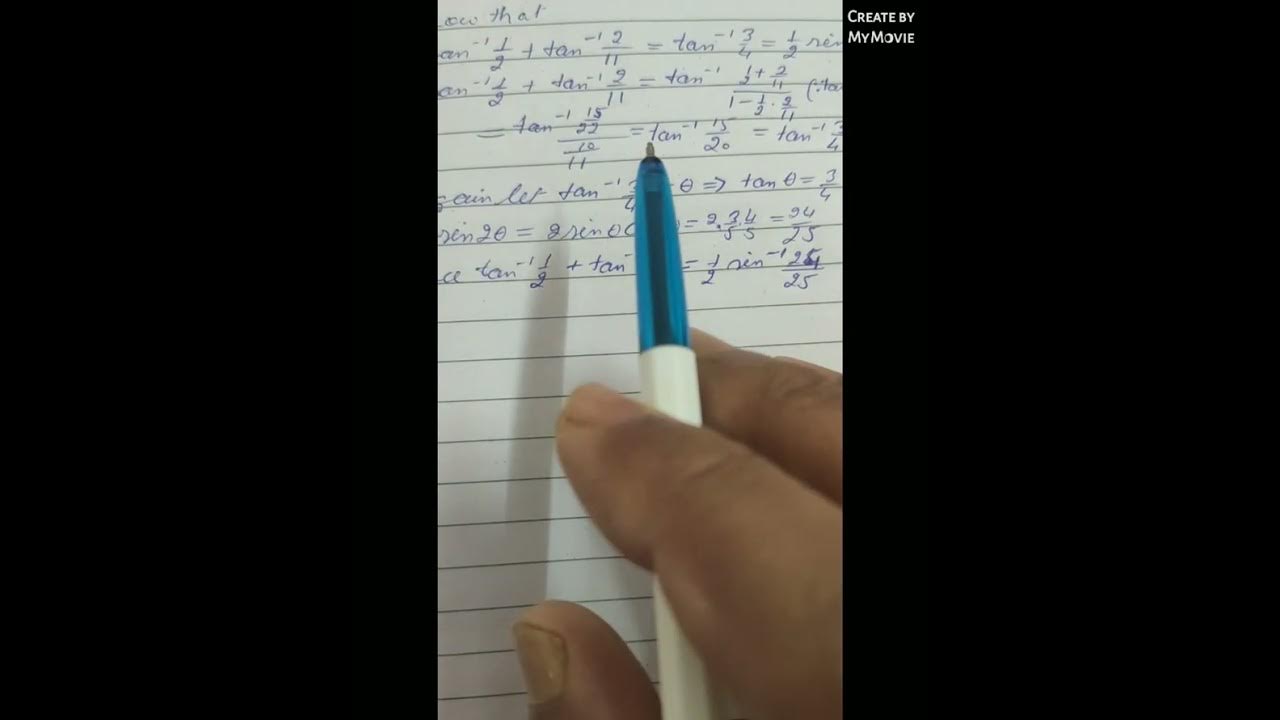 ow that
an⁻¹ 1/2 + tan⁻¹ 2/11 = tan⁻¹ 3/4 = 1/2 sin
an⁻¹ 1/2 + tan⁻¹ 2/11 = tan⁻¹ (1/2 + 2/11)/(1 - 1/2 · 2/11) (∵ta
= tan⁻¹ (15/22)/(10/11) = tan⁻¹ 15/20 = tan⁻¹ 3/4
gain let tan⁻¹ 3/4 = θ ⇒ tan θ = 3/4
sin 2θ = 2 sin θ = 2·3/5·4/5 = 24/25
ce tan⁻¹ 1/2 + tan⁻ = 1/2 sin⁻¹ 24/25
CREATE BY
MYMOVIE